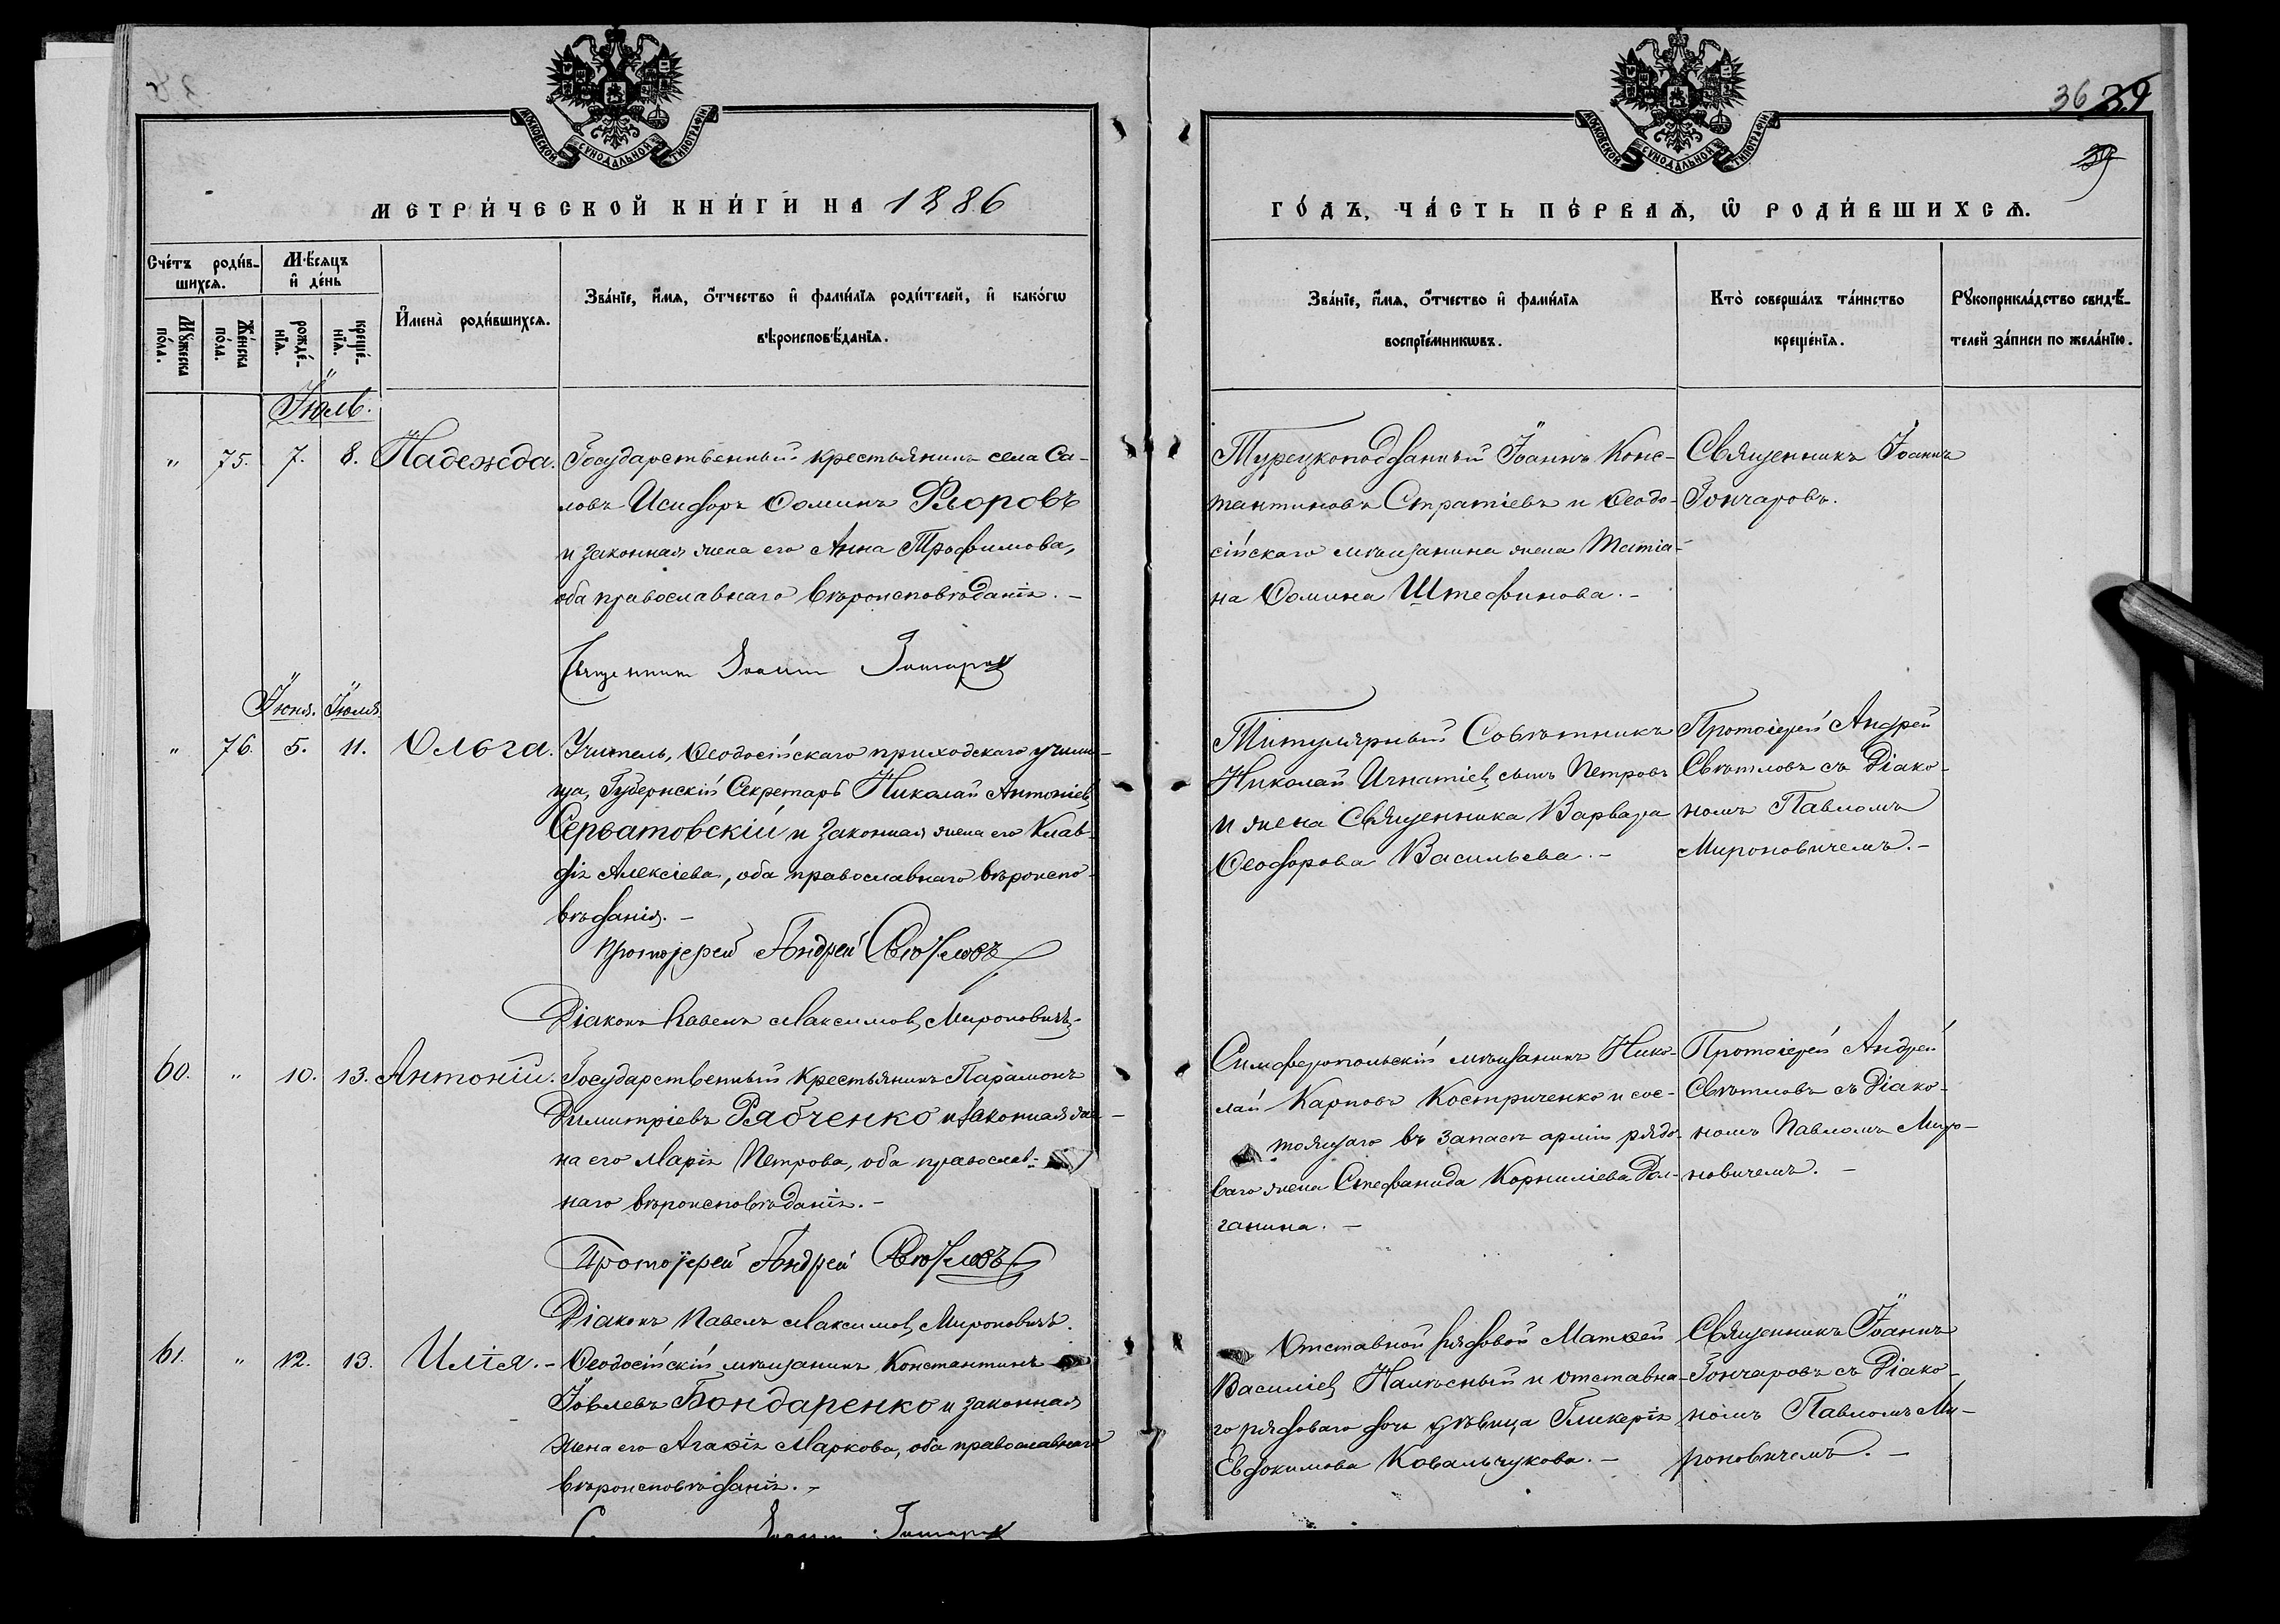 МОСКОВСКОЙ СѴНОДАЛЬНОЙ ТИПОГРАФІИ
МЕТРИ́ЧЕСКОЙ КНИ́ГИ НА 1886
Сче́тъ роди́в-
шихсѧ.
Мѣ́сѧцъ
и҆ де́нь
Мꙋ́жеска
по́ла.
Же́нска
по́ла.
рожде́-
нїѧ.
креще́-
нїѧ.
И҆мена̀ роди́вшихсѧ.
Зва́нїе, и҆́мѧ, ѻ҆́тчество и҆ фами́лїѧ роди́телей, и҆ како́гѡ
вѣроисповѣ́данїѧ.
Іюль.
" 75. 7. 8. Надежда. Государственный крестьянинъ села Са-
ловъ Исидоръ Ѳоминъ Флоровъ
и законная жена его Анна Трофимова,
оба православнаго вѣроисповѣданія. -
Священникъ Іоаннъ Гончаровъ
Іюня. Іюля.
" 76. 5. 11. Ольга. Учитель, Ѳеодосійскаго приходскаго учили-
ща, Губернскій Секретарь Николай Антоніевъ
Серватовскій и законная жена его Клав-
дія Алексіева, оба православнаго вѣроиспо-
вѣданія. -
Протоіерей Андрей Свѣтловъ
Діаконъ Павелъ Максимовъ Мироновичъ.
60. " 10. 13. Антоній. Государственный крестьянинъ Парамонъ
Димитріевъ Рябченко и законная же-
на его Марія Петрова, оба православ-
наго вѣроисповѣданія. -
Протоіерей Андрей Свѣтловъ
Діаконъ Павелъ Максимовъ Мироновичъ.
61. " 12. 13. Илія. - Ѳеодосійскій мѣщанинъ Константинъ
Іовлевъ Бондаренко и законная
жена его Агаѳія Маркова, оба православнаго
вѣроисповѣданія. -
Іоаннъ Гончаровъ
36 39
39
МОСКОВСКОЙ СѴНОДАЛЬНОЙ ТИПОГРАФІИ
ГО́ДЪ, ЧА́СТЬ ПЕ́РВАѦ, Ѡ҆ РОДИ́ВШИХСѦ.
Зва́нїе, и҆́мѧ, ѻ҆́тчество и҆ фами́лїѧ
воспрїе́мникѡвъ.
Кто̀ соверша́лъ та́инство
креще́нїѧ.
Рꙋкоприкла́дство свидѣ́-
телей за́писи по жела́нїю.
Турецкоподданный Іоаннъ Конс-
тантиновъ Стратіевъ и Ѳеодо-
сійскаго мѣщанина жена Татіа-
на Ѳомина Штефинова. -
Священникъ Іоаннъ
Гончаровъ.
Титулярный Совѣтникъ
Николай Игнатіевъ сынъ Петровъ
и жена Священника Варвара
Ѳеодорова Васильева. -
Протоіерей Андрей
Свѣтловъ съ Діако-
номъ Павломъ
Мироновичемъ. -
Симферопольскій мѣщанинъ Нико-
лай Карповъ Костриченко и сос-
тоящаго въ запасѣ арміи рядо-
ваго жена Стефанида Корниліева Дол-
ганина. -
Протоіерей Андрей
Свѣтловъ съ Діако-
номъ Павломъ Миро-
новичемъ. -
Отставной рядовой Матѳей
Василіевъ Налѣсный и отставна-
го рядоваго дочь дѣвица Гликерія
Евдокимова Ковальчукова. -
Священникъ Іоаннъ
Гончаровъ съ Діако-
номъ Павломъ Ми-
роновичемъ. -